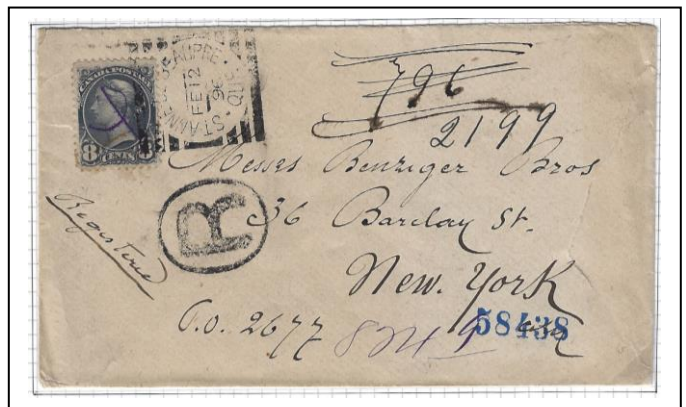 CANADA POSTAGE
8 CENTS 8
STE ANNE DE BEAUPRE
FE 12
96
QUE
796
2199
Messrs Benziger Bros
36 Barclay St.
New. York
Registered
R
P.O. 2677
58438